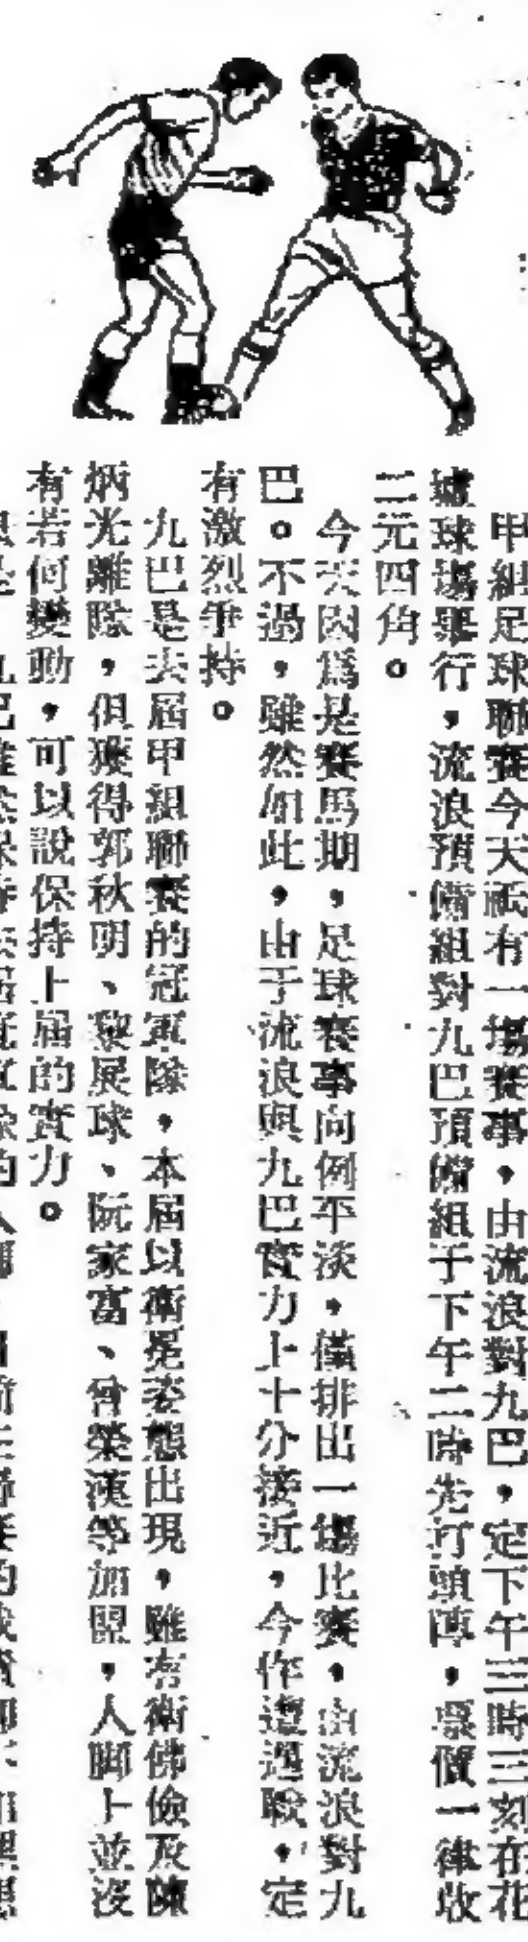 甲組足球聯賽今天祇有一場賽事，由流浪對九巴，定下午三時三刻在花
墟球塲舉行，流浪預備組對九巴預備組于下午二時先打頭陣，票價一律收
二元四角。
今天因爲是賽馬期，足球賽事向例平淡，僅排出一塲比賽，由流浪對九
巴。不過，雖然如此，由于流浪與九巴實力上十分接近，今作遭遇戰，定
有激烈爭持。
九巴是去屆甲組聯賽的冠軍隊，本屆以衛冕姿態出現，雖有衛佛儉及陳
炳光離隊，但獲得郭秋明、黎展球、阮家富、曾榮漢等加盟，人脚上並沒
有若何變動，可以說保持上屆的實力。